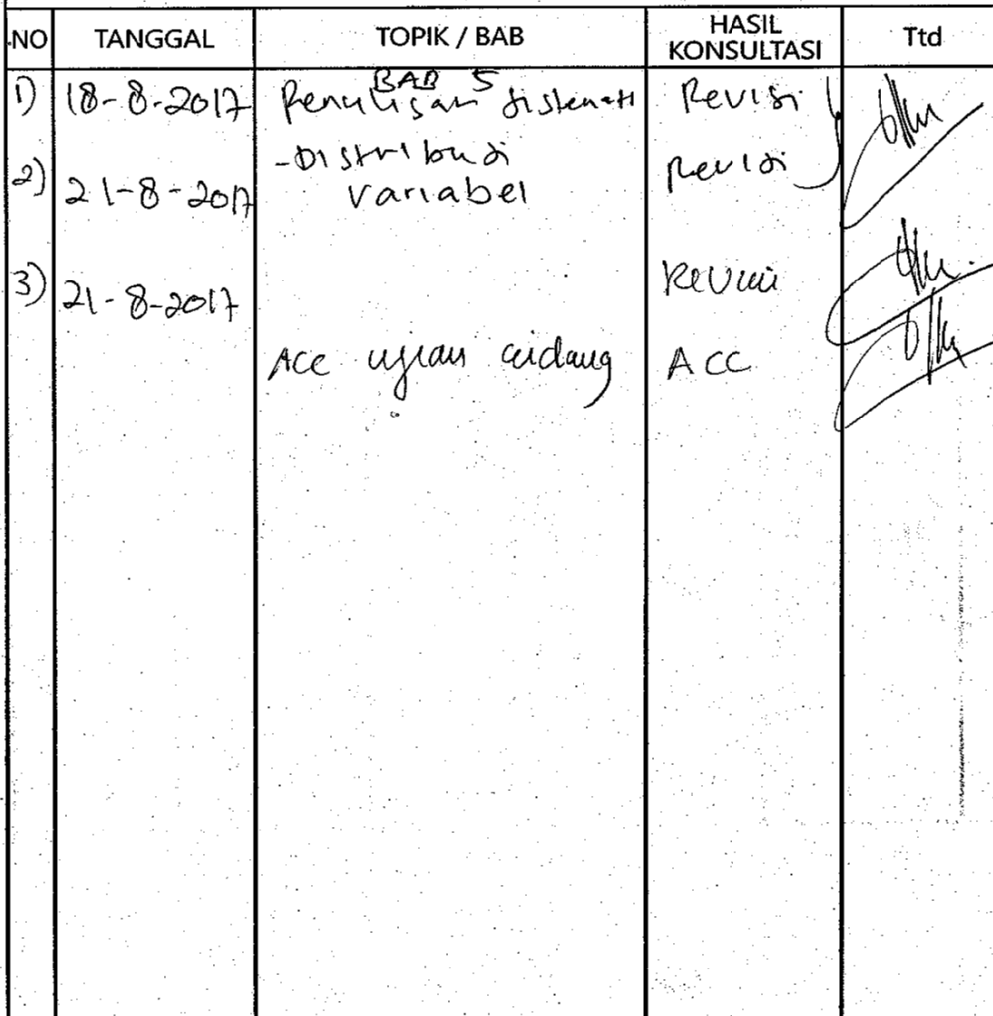 NO TANGGAL TOPIK / BAB HASIL KONSULTASI Ttd
BAB 5
1) 18-8-2017 Penulisan sistemati Revisi
2) 21-8-2017 - Distribusi Revisi
variabel
3) 21-8-2017 Revisi
Acc ujian sidang ACC